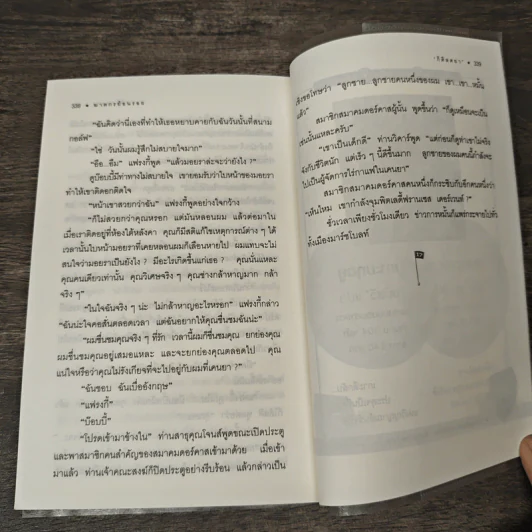 338 • ฆาตกรซ่อนรอย
"ฉันคิดว่านี่เองที่ทำให้เธอหยาบคายกับฉันวันนั้นที่สนาม
กอล์ฟ"
"ใช่ วันนั้นผมรู้สึกไม่สบายใจมาก"
"อืม...อืม" แฟรงกี้พูด "แล้วมอยราล่ะจะว่ายังไง ?"
ดูบ๊อบบี้มีท่าทางไม่สบายใจ เขายอมรับว่าใบหน้าของมอยรา
ทำให้เขาติดอกติดใจ
"หน้าเขาสวยกว่าฉัน" แฟรงกี้พูดอย่างใจกว้าง
"ก็ไม่สวยกว่าคุณหรอก แต่มันหลอนผม แล้วต่อมาใน
เมื่อเราติดอยู่ที่ห้องใต้หลังคา คุณก็มีสติแก้ไขเหตุการณ์ต่าง ๆ ได้
เวลานั้นใบหน้ามอยราที่เคยหลอนผมก็เลือนหายไป ผมแทบจะไม่
สนใจว่ามอยราเป็นยังไง ? มีอะไรเกิดขึ้นแก่เธอ ? คุณนั่นแหละ
คุณคนเดียวเท่านั้น คุณวิเศษจริง ๆ คุณช่างกล้าหาญมาก กล้า
จริง ๆ"
"ในใจฉันจริง ๆ น่ะ ไม่กล้าหาญอะไรหรอก" แฟรงกี้กล่าว
"ฉันน่ะใจคอสั่นตลอดเวลา แต่ฉันอยากให้คุณชื่นชมฉันน่ะ"
"ผมชื่นชมคุณจริง ๆ ที่รัก เวลานี้ผมก็ชื่นชมคุณ ยกย่องคุณ
ผมชื่นชมคุณอยู่เสมอแหละ และจะยกย่องคุณตลอดไป คุณ
แน่ใจหรือว่าคุณไม่รังเกียจที่จะไปอยู่กับผมที่เคนยา ?"
"ฉันชอบ ฉันเบื่ออังกฤษ"
"แฟรงกี้"
"บ๊อบบี้"
"โปรดเข้ามาข้างใน" ท่านสาธุคุณโจนส์พูดขณะเปิดประตู
และพาสมาชิกคนสำคัญของสมาคมดอร์คาสเข้ามาด้วย เมื่อเข้า
มาแล้ว ท่านเจ้าคณะสงฆ์ก็ปิดประตูอย่างรีบร้อน แล้วกล่าวเป็น
339
เชิงขอโทษว่า "ลูกชาย...ลูกชายคนหนึ่งของผม เขา...เขา...หมั้น
แล้ว"
สมาชิกสมาคมดอร์คาสผู้นั้น พูดขึ้นว่า "ก็ดูเหมือนจะเป็น
เช่นนั้นแหละครับ"
"เขาเป็นเด็กดี" ท่านวิคาร์พูด "แต่ก่อนก็ดูท่าเขาไม่จริง
จังกับชีวิตนัก แต่เร็ว ๆ นี้ดีขึ้นมาก ลูกชายของผมคนนี้กำลังจะ
ไปเป็นผู้จัดการไร่กาแฟในเคนยา"
สมาชิกสมาคมดอร์คาสคนหนึ่งก็กระซิบกับอีกคนหนึ่งว่า
"เห็นไหม เขากำลังจุมพิตเลดี้ฟรานเซส เดอร์เวนท์ ?"
ชั่วเวลาเพียงชั่วโมงเดียว ข่าวการหมั้นก็แพร่กระจายไปทั่ว
ทั้งเมืองมาร์ชโบลท์